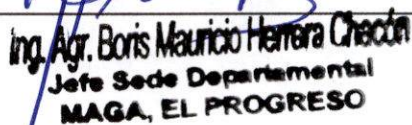 Ing. Agr. Boris Mauricio Herrera Chacón
Jefe Sede Departamental
MAGA, EL PROGRESO